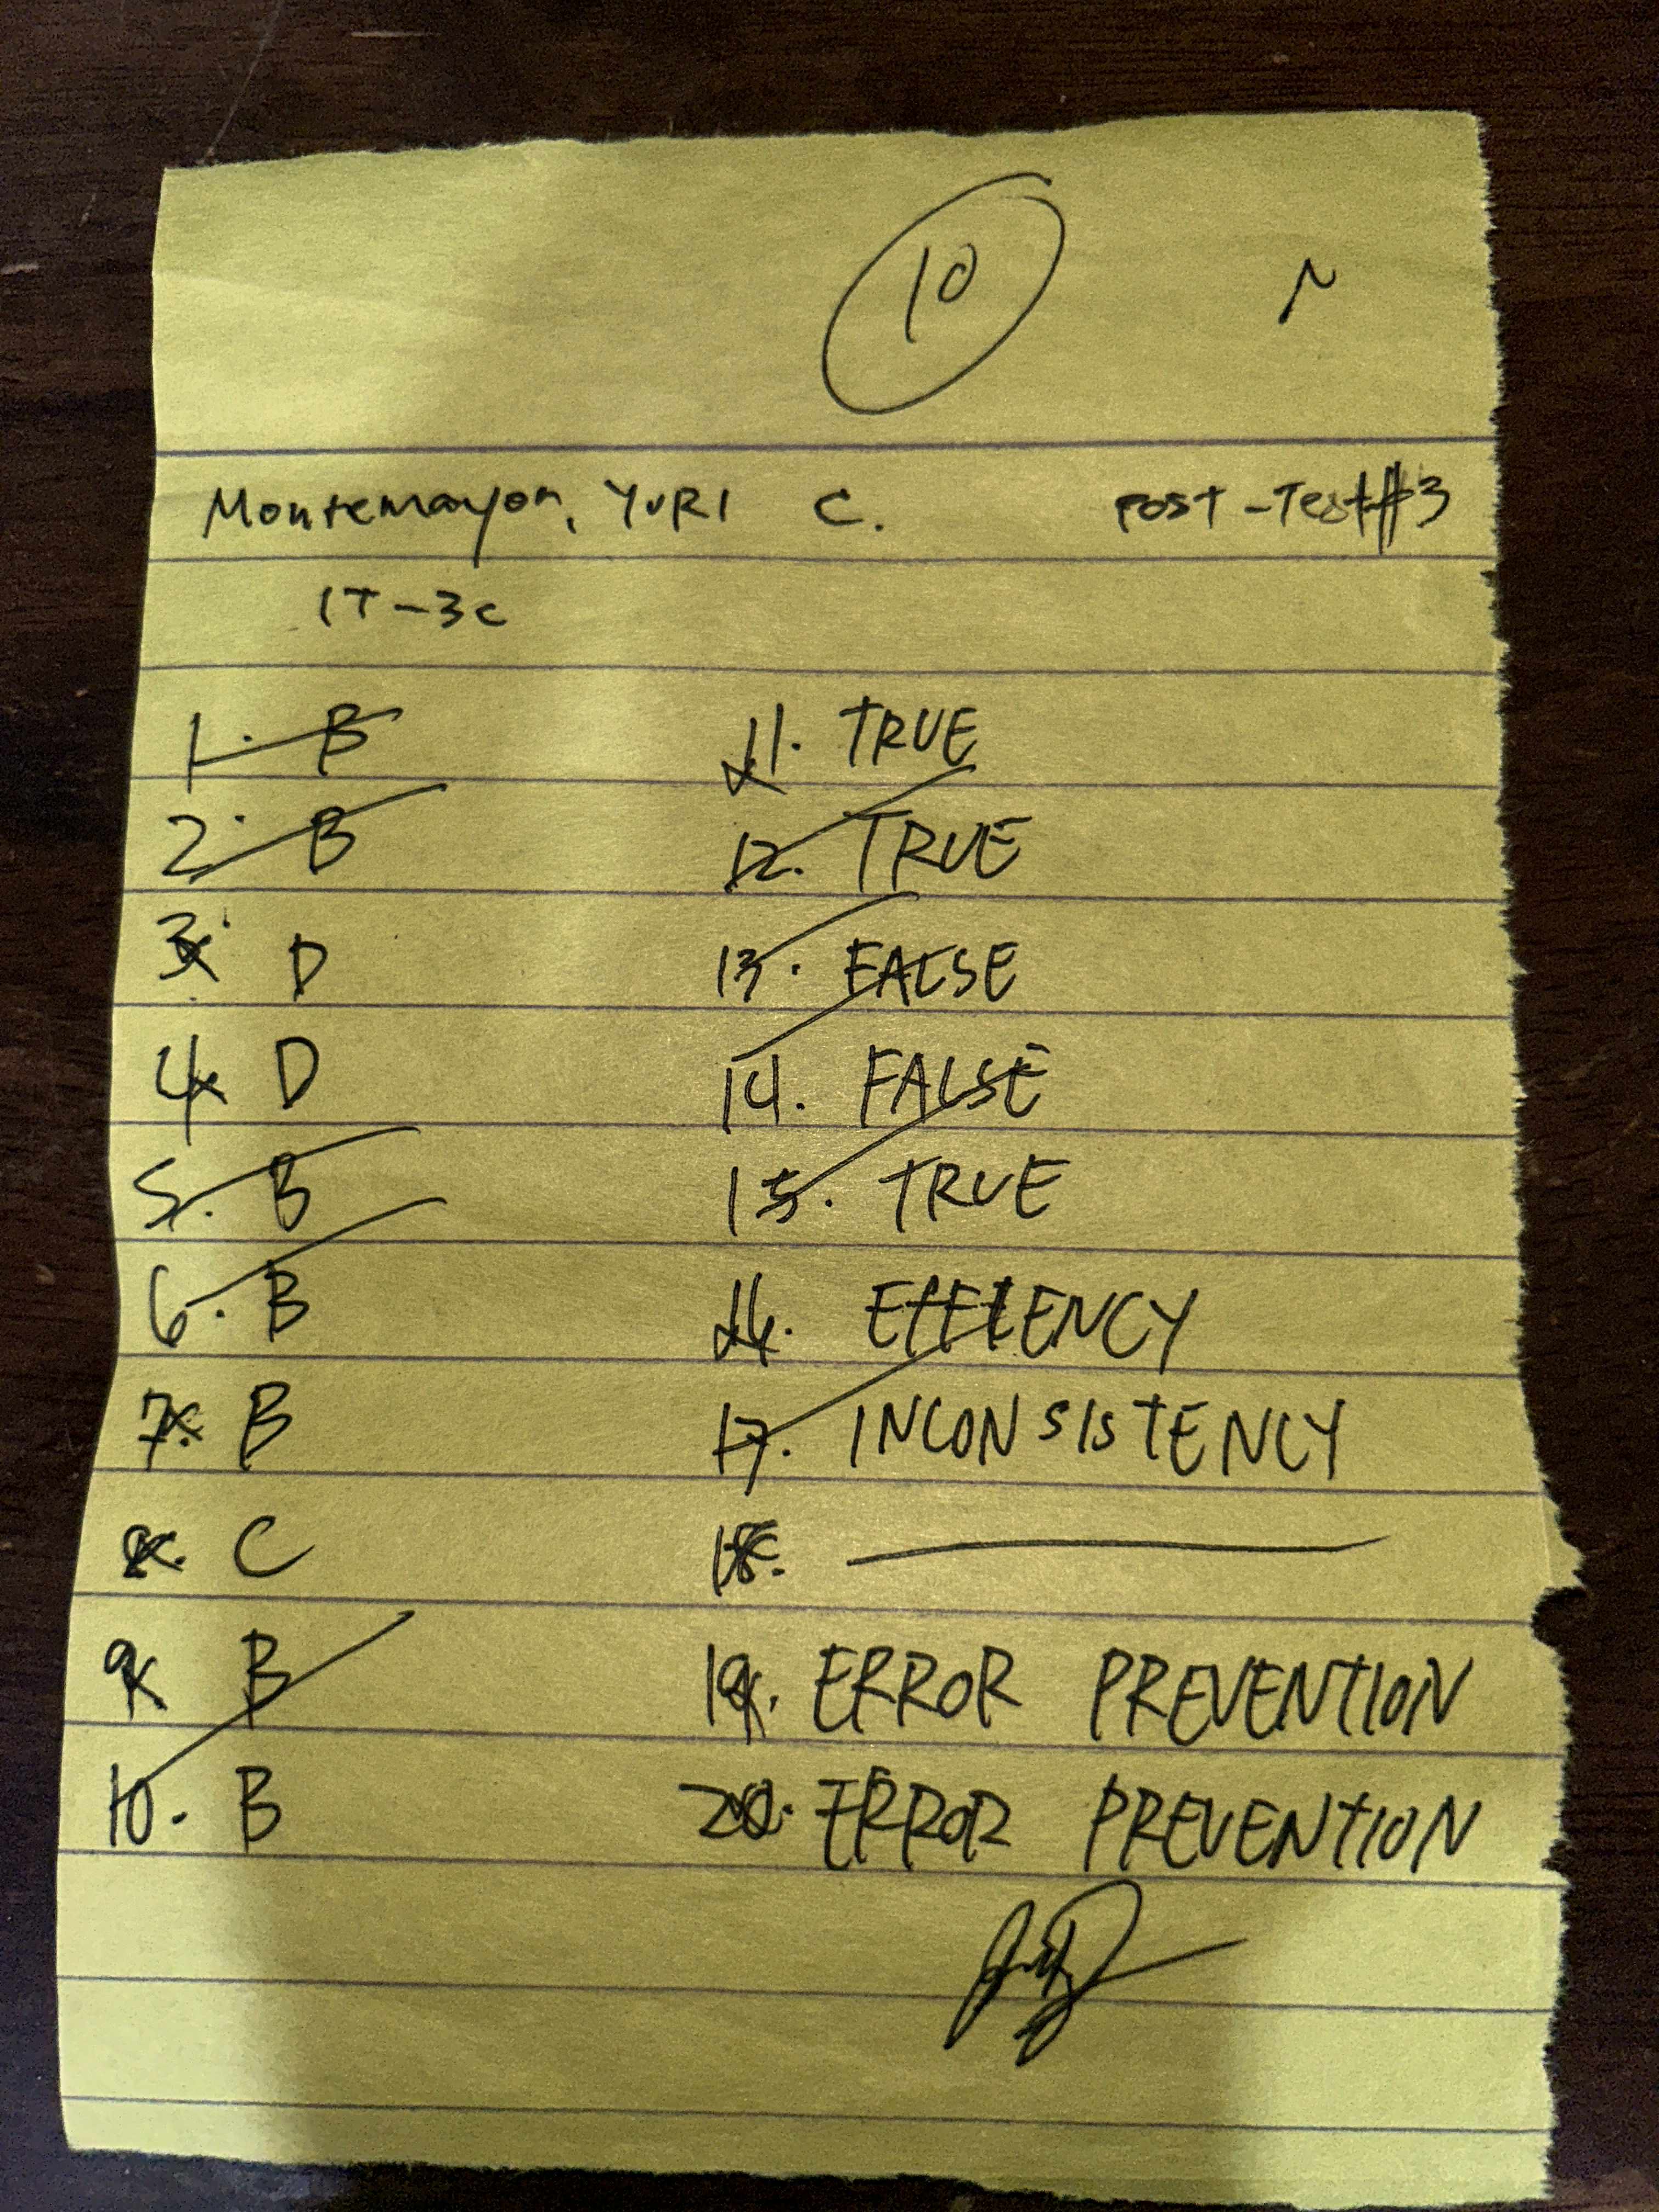 10
Montemayor, YURI C. POST-Test#3
IT-3C
1. B
2. B
3. D
4. D
5. B
6. B
7. B
8. C
9. B
10. B
11. TRUE
12. TRUE
13. FALSE
14. FALSE
15. TRUE
16. EFFIENCY
17. INCONSISTENCY
18.
19. ERROR PREVENTION
20. ERROR PREVENTION